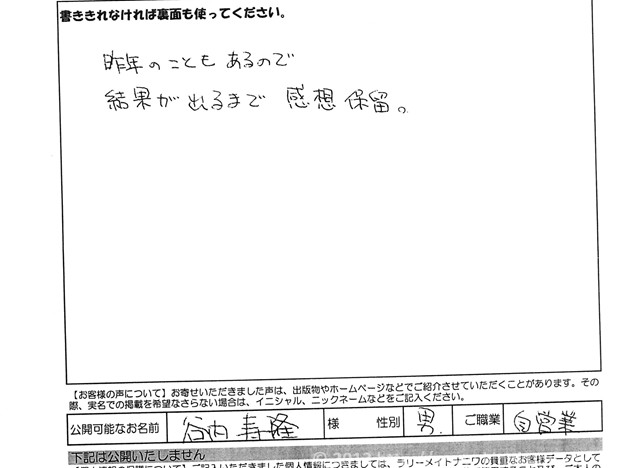 書ききれなければ裏面も使ってください。
昨年のこともあるので
結果が出るまで 感想保留。
【お客様の声について】お寄せいただきました声は、出版物やホームページなどでご紹介させていただくことがあります。その
際、実名での掲載を希望なさらない場合は、イニシャル、ニックネームなどをご記入ください。
公開可能なお名前 谷内寿隆 様 性別 男 ご職業 自営業
下記は公開いたしません
ご記入いただきました個人情報につきましては、ラリーメイトナニワの貴重なお客様データとして